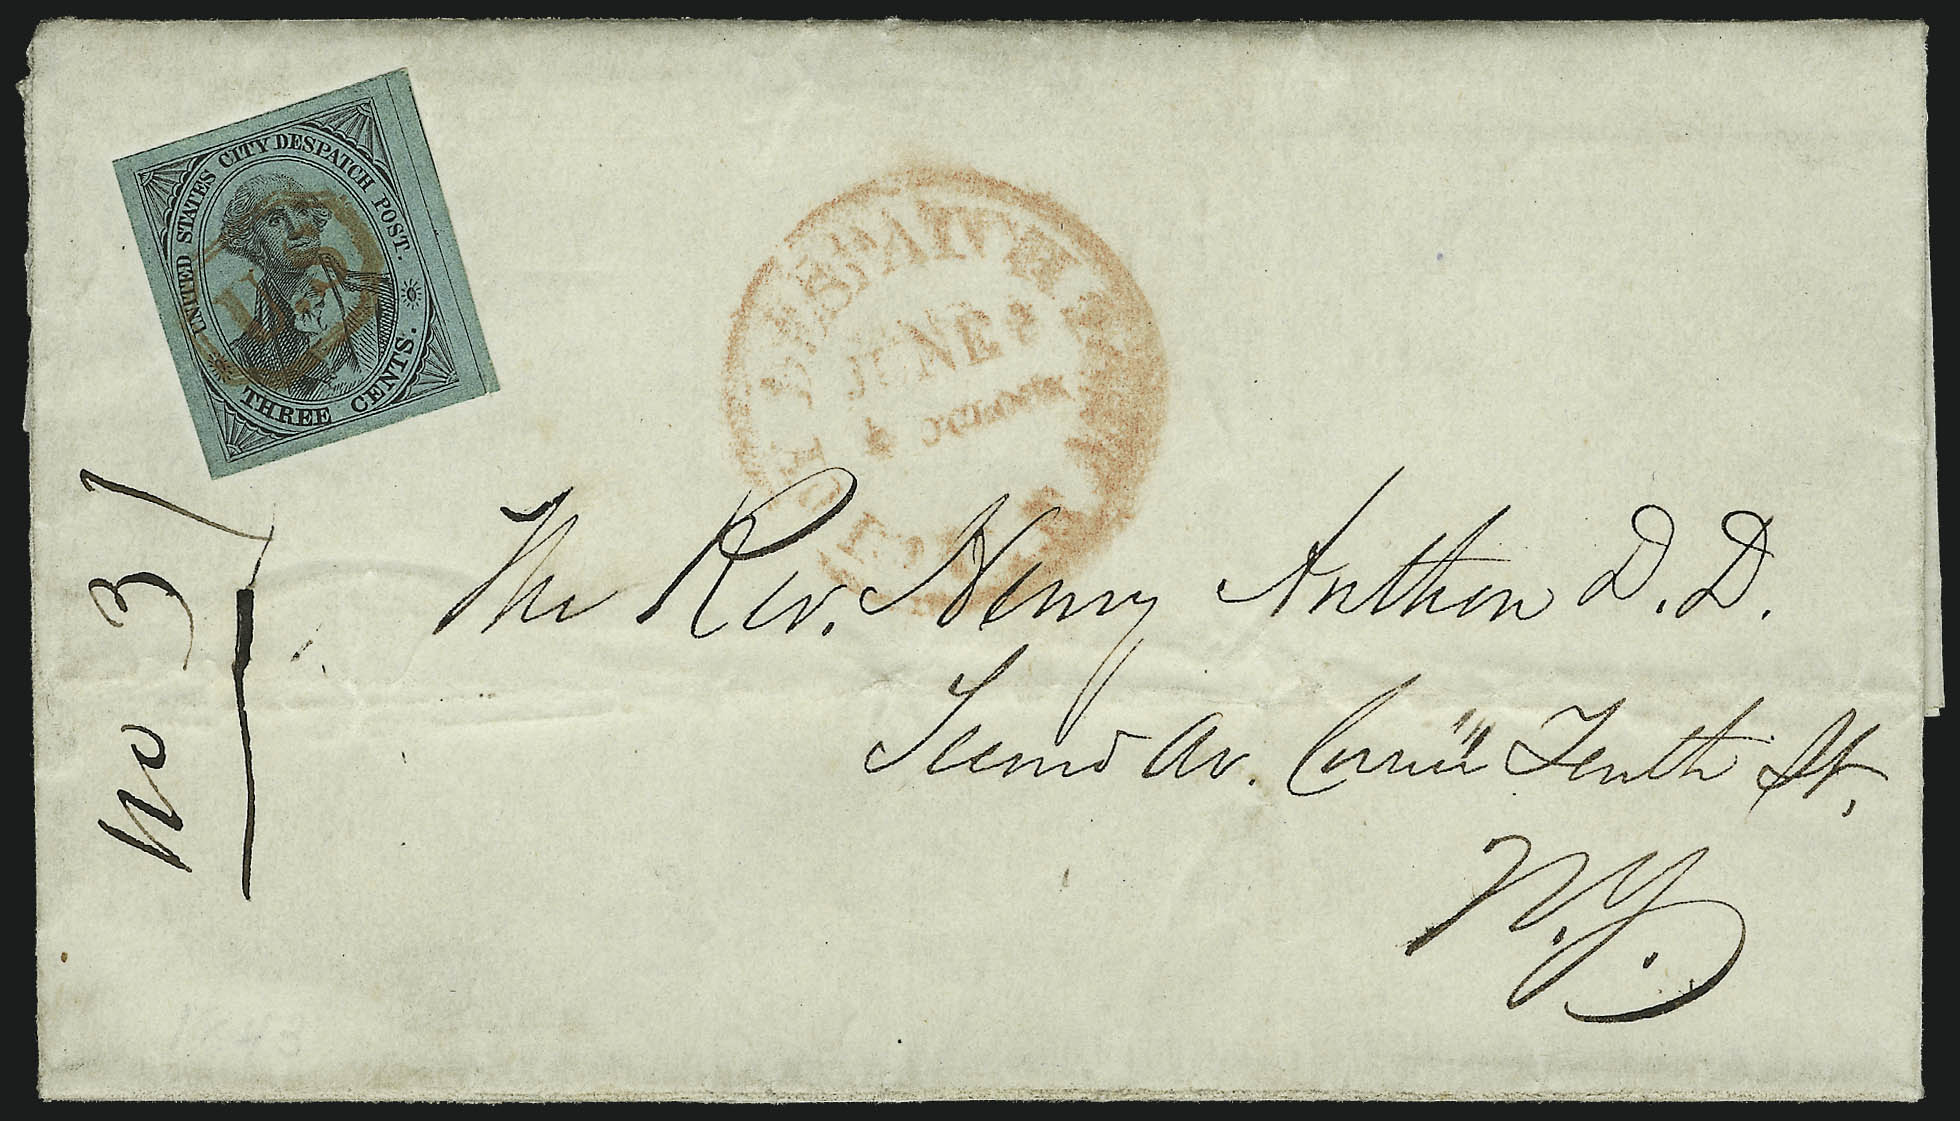 UNITED STATES CITY DESPATCH POST.
THREE CENTS.
U.S
DESPATCH
JUNE
4 O'CLOCK
No 31
The Rev. Henry Anthon D.D.
Second Av. Corner Tenth St.
N.Y.